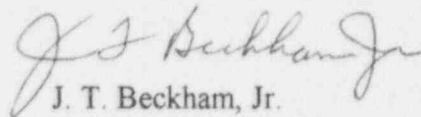 J T Beckham Jr
J. T. Beckham, Jr.